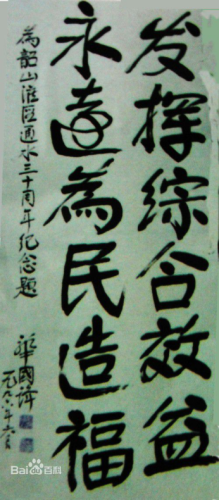 发挥综合效益
永遠為民造福
為韶山灌区通水三十周年纪念题
華國锋
一九九六年六月
Bai百科